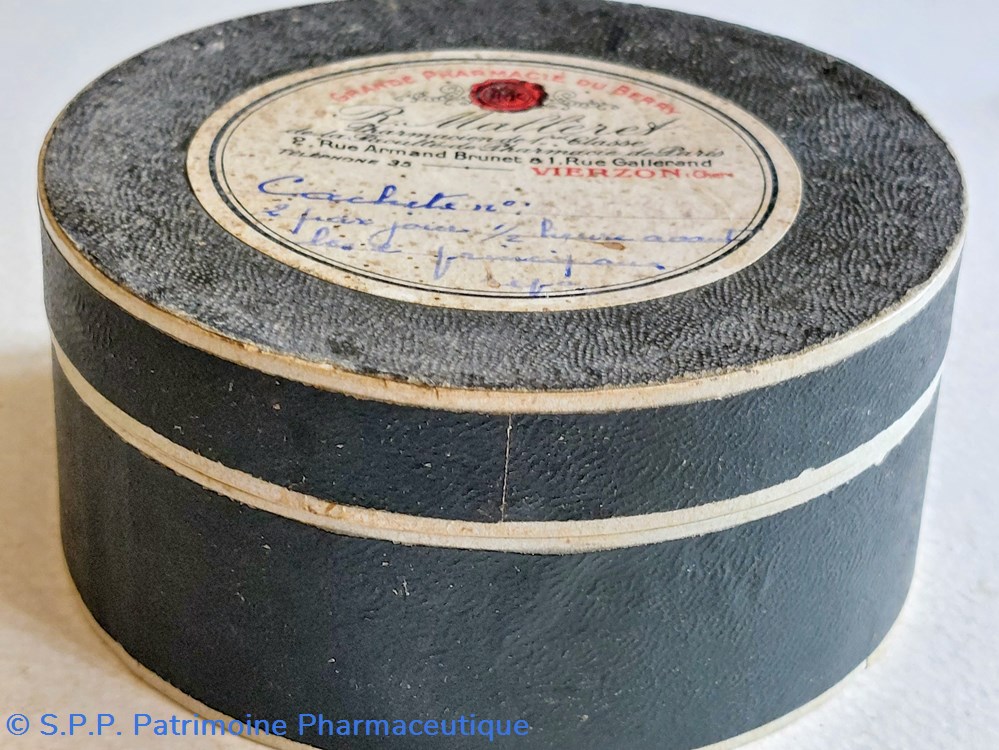 GRANDE PHARMACIE DU BERRY
R. Malleret
Pharmacien de 1ère Classe
de la Faculté de Pharmacie de Paris
2, Rue Armand Brunet & 1, Rue Gallerand
TÉLÉPHONE 35
VIERZON (Cher)
Cachets no:
2 par jour 1/2 heure avant
les 2 principaux
repas
© S.P.P. Patrimoine Pharmaceutique